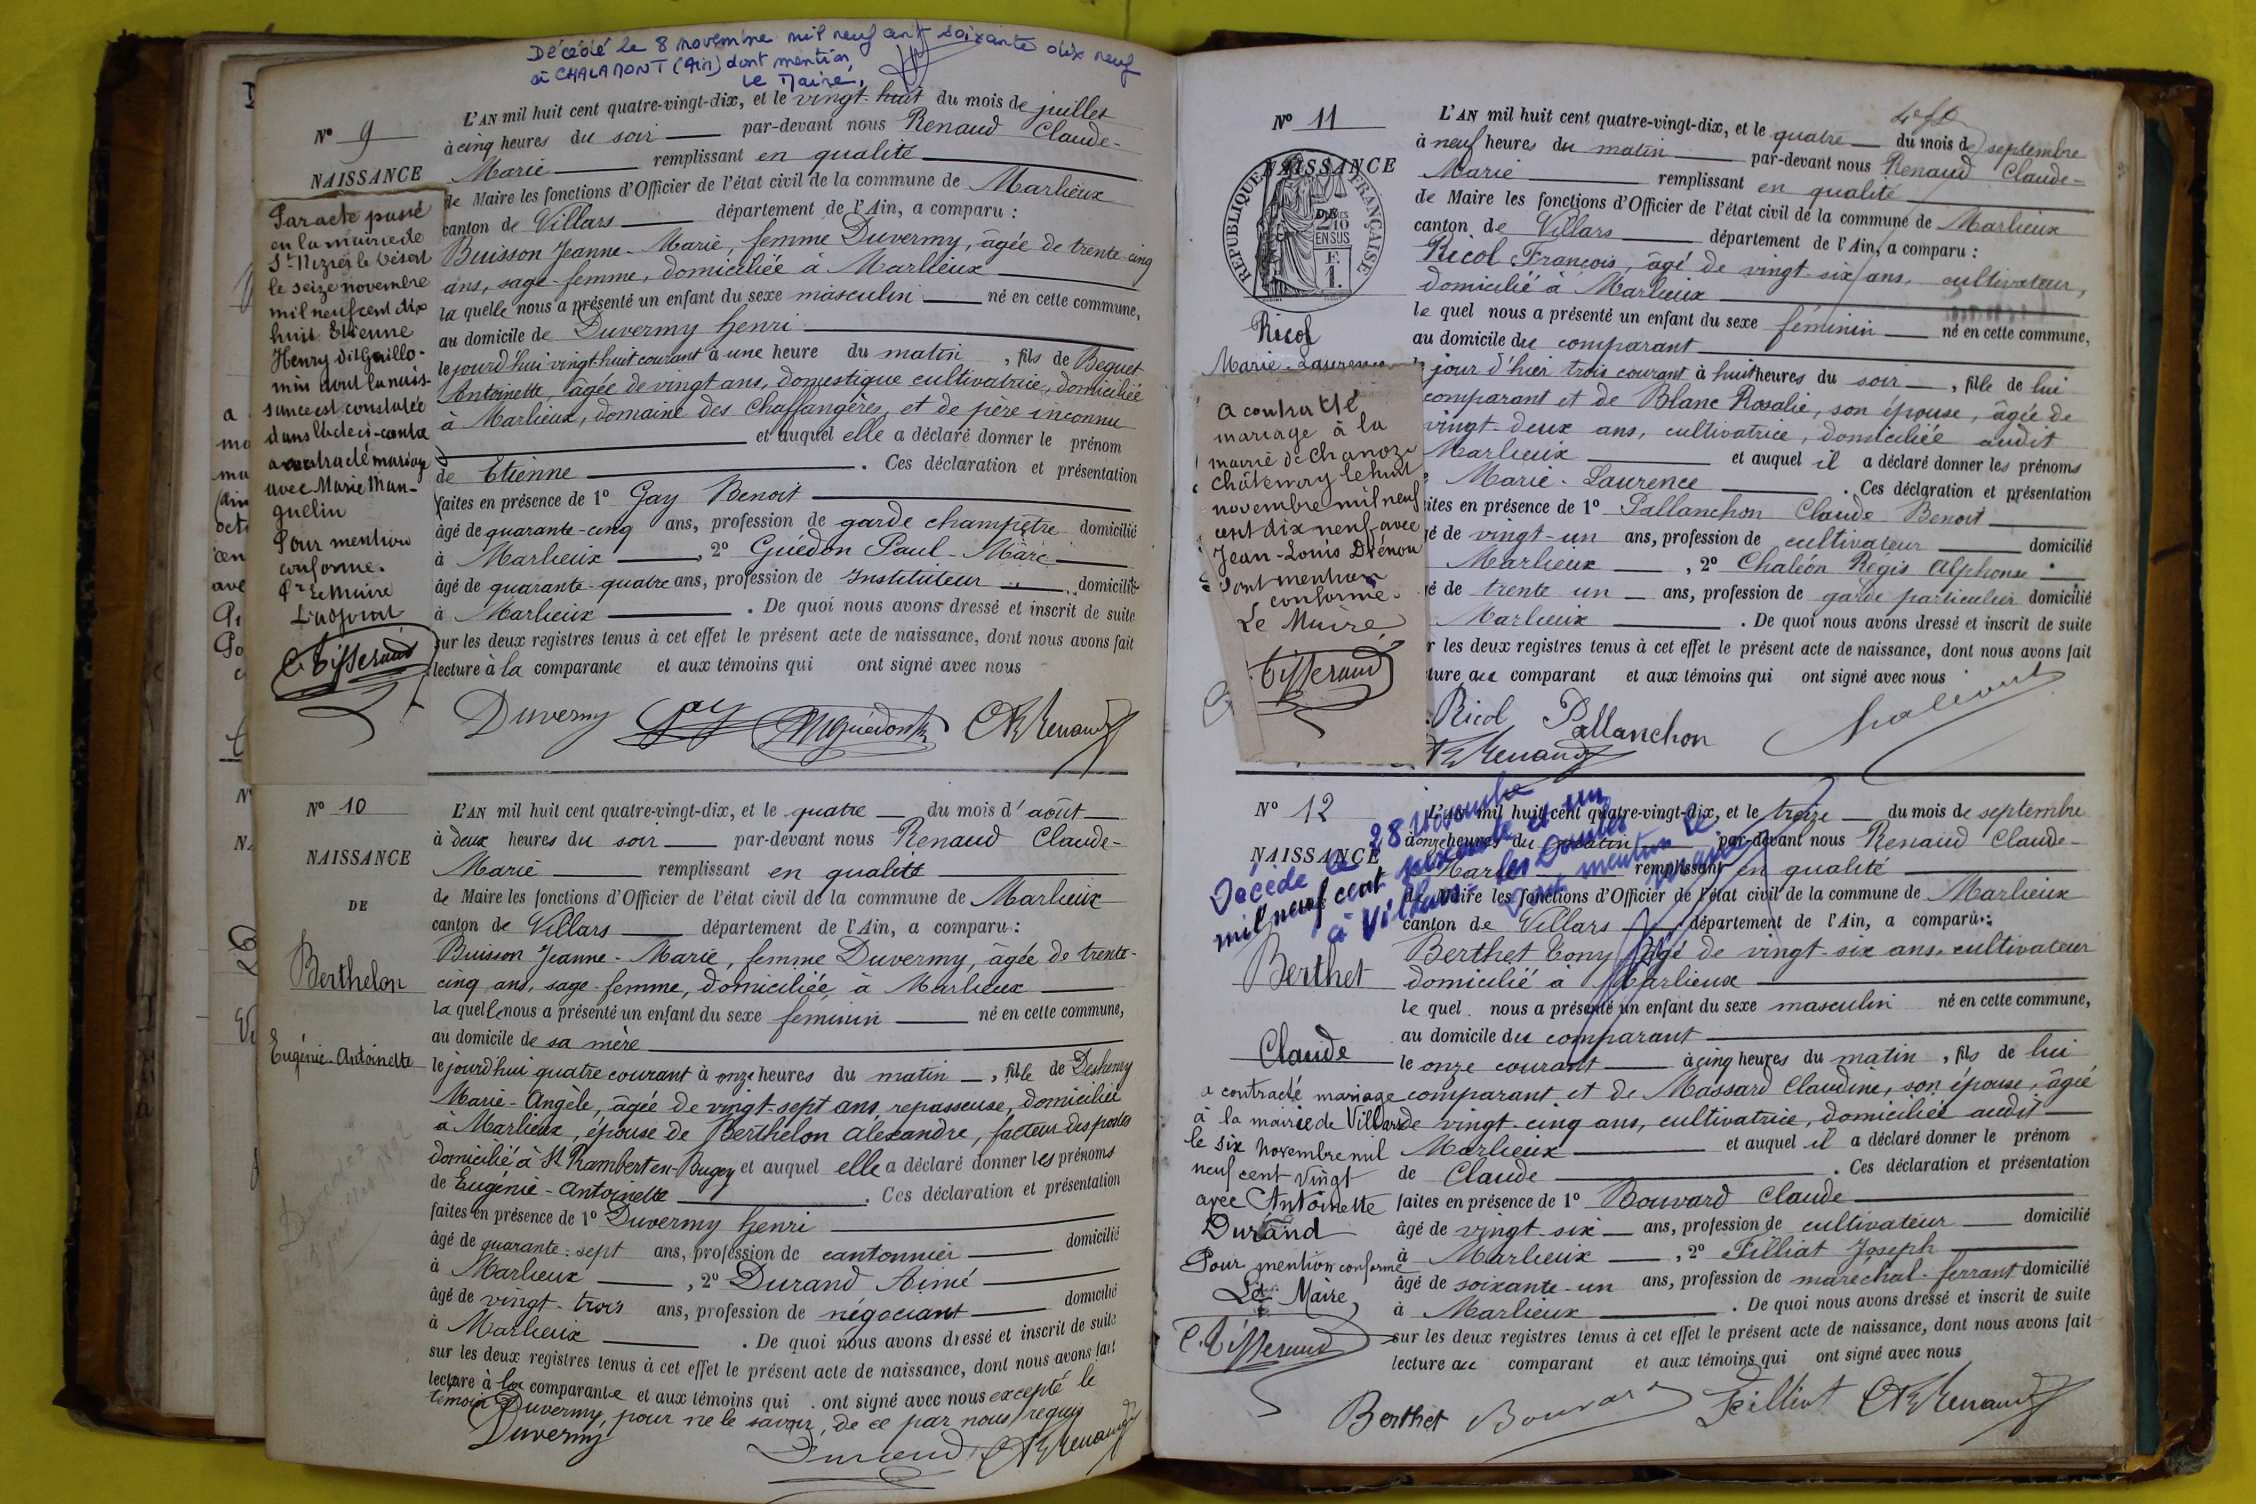 Décédé le 8 novembre mil neuf cent soixante dix neuf
à CHALAMONT (Ain) dont mention
Le Maire,
N° 9
NAISSANCE
Par acte passé
en la mairie de
St Nizier le Désert
le seize novembre
mil neuf cent dix
huit Etienne
Henry dit Guillo-
min dont la nais-
sance est constatée
dans l'acte ci-contre
a contracté mariage
avec Marie Man-
guelin
Pour mention
conforme.
Pr Le Maire
L'adjoint
C. Tisserand
L'AN mil huit cent quatre-vingt-dix, et le vingt-huit du mois de juillet
à cinq heures du soir par-devant nous Renaud Claude-
Marie remplissant en qualité
de Maire les fonctions d'Officier de l'état civil de la commune de Marlieux
canton de Villars département de l'Ain, a comparu :
Buisson Jeanne-Marie, femme Duvermy, âgée de trente-cinq
ans, sage-femme, domiciliée à Marlieux
la quelle nous a présenté un enfant du sexe masculin né en cette commune,
au domicile de Duvermy Henri
le jourd'hui vingt huit courant à une heure du matin, fils de Bequet
Antoinette, âgée de vingt ans, domestique cultivatrice, domiciliée
à Marlieux, domaine des Chaffangères, et de père inconnu
et auquel elle a déclaré donner le prénom
de Etienne . Ces déclaration et présentation
faites en présence de 1° Gay Benoit
âgé de quarante-cinq ans, profession de garde champêtre domicilié
à Marlieux , 2° Guédon Paul-Marc
âgé de quarante-quatre ans, profession de Instituteur domicilié
à Marlieux . De quoi nous avons dressé et inscrit de suite
sur les deux registres tenus à cet effet le présent acte de naissance, dont nous avons fait
lecture à la comparante et aux témoins qui ont signé avec nous
Duvermy Gay Guédon Renaud
N° 10
NAISSANCE
DE
Berthelon
Eugénie-Antoinette
L'AN mil huit cent quatre-vingt-dix, et le quatre du mois d'août
à deux heures du soir par-devant nous Renaud Claude-
Marie remplissant en qualité
de Maire les fonctions d'Officier de l'état civil de la commune de Marlieux
canton de Villars département de l'Ain, a comparu :
Buisson Jeanne-Marie, femme Duvermy, âgée de trente-
cinq ans, sage-femme, domiciliée à Marlieux
la quelle nous a présenté un enfant du sexe féminin né en cette commune,
au domicile de sa mère
le jourd'hui quatre courant à onze heures du matin, fille de Deshenry
Marie-Angèle, âgée de vingt-sept ans, repasseuse, domiciliée
à Marlieux, épouse de Berthelon Alexandre, facteur des postes
domicilié à St Rambert en-Bugey et auquel elle a déclaré donner les prénoms
de Eugénie-Antoinette . Ces déclaration et présentation
faites en présence de 1° Duvermy Henri
âgé de quarante-sept ans, profession de cantonnier domicilié
à Marlieux , 2° Durand Aimé
âgé de vingt-trois ans, profession de négociant domicilié
à Marlieux . De quoi nous avons dressé et inscrit de suite
sur les deux registres tenus à cet effet le présent acte de naissance, dont nous avons fait
lecture à la comparante et aux témoins qui ont signé avec nous excepté le
témoin Duvermy, pour ne le savoir, de ce par nous requis
Duvermy Durand Renaud
N° 11
NAISSANCE
RÉPUBLIQUE FRANÇAISE
2/10
EN SUS
F.
1.
Ricol
Marie-Laurence
A contracté
mariage à la
mairie de Chanoz-
Châtenay le huit
novembre mil neuf
cent dix neuf avec
Jean-Louis Drénou
Pour mention
conforme.
Le Maire
Tisserand
L'AN mil huit cent quatre-vingt-dix, et le quatre du mois de septembre
à neuf heures du matin par-devant nous Renaud Claude-
Marie remplissant en qualité
de Maire les fonctions d'Officier de l'état civil de la commune de Marlieux
canton de Villars département de l'Ain, a comparu :
Ricol François, âgé de vingt-six ans, cultivateur,
domicilié à Marlieux
le quel nous a présenté un enfant du sexe féminin né en cette commune,
au domicile du comparant
jour d'hier trois courant à huit heures du soir, fille de lui
comparant et de Blanc Rosalie, son épouse, âgée de
vingt-deux ans, cultivatrice, domiciliée audit
Marlieux et auquel il a déclaré donner les prénoms
Marie-Laurence . Ces déclaration et présentation
aites en présence de 1° Pallanchon Claude Benoit
gé de vingt-un ans, profession de cultivateur domicilié
Marlieux , 2° Chaléon Régis Alphonse
gé de trente un ans, profession de garde particulier domicilié
Marlieux . De quoi nous avons dressé et inscrit de suite
r les deux registres tenus à cet effet le présent acte de naissance, dont nous avons fait
ture au comparant et aux témoins qui ont signé avec nous
Ricol Pallanchon
Renaud
N° 12
NAISSANCE
Décédé le 28 novembre
mil neuf cent soixante et un
à Villars-les Dombes
Dont mention le
maire
Berthet
Claude
a contracté mariage
à la mairie de Villars
le six novembre mil
neuf cent vingt
avec Antoinette
Durand
Pour mention conforme
Le Maire,
C. Tisserand
L'AN mil huit cent quatre-vingt-dix, et le treize du mois de septembre
à onze heures du matin par-devant nous Renaud Claude-
Marie remplissant en qualité
de Maire les fonctions d'Officier de l'état civil de la commune de Marlieux
canton de Villars département de l'Ain, a comparu :
Berthet Tony âgé de vingt-six ans, cultivateur
domicilié à Marlieux
le quel nous a présenté un enfant du sexe masculin né en cette commune,
au domicile du comparant
le onze courant à cinq heures du matin, fils de lui
comparant et de Massard Claudine, son épouse, âgée
de vingt-cinq ans, cultivatrice, domiciliée audit
Marlieux et auquel il a déclaré donner le prénom
de Claude . Ces déclaration et présentation
faites en présence de 1° Bouvard Claude
âgé de vingt-six ans, profession de cultivateur domicilié
à Marlieux , 2° Filliat Joseph
âgé de soixante-un ans, profession de maréchal-ferrant domicilié
à Marlieux . De quoi nous avons dressé et inscrit de suite
sur les deux registres tenus à cet effet le présent acte de naissance, dont nous avons fait
lecture au comparant et aux témoins qui ont signé avec nous
Berthet Bouvard Filliat Renaud